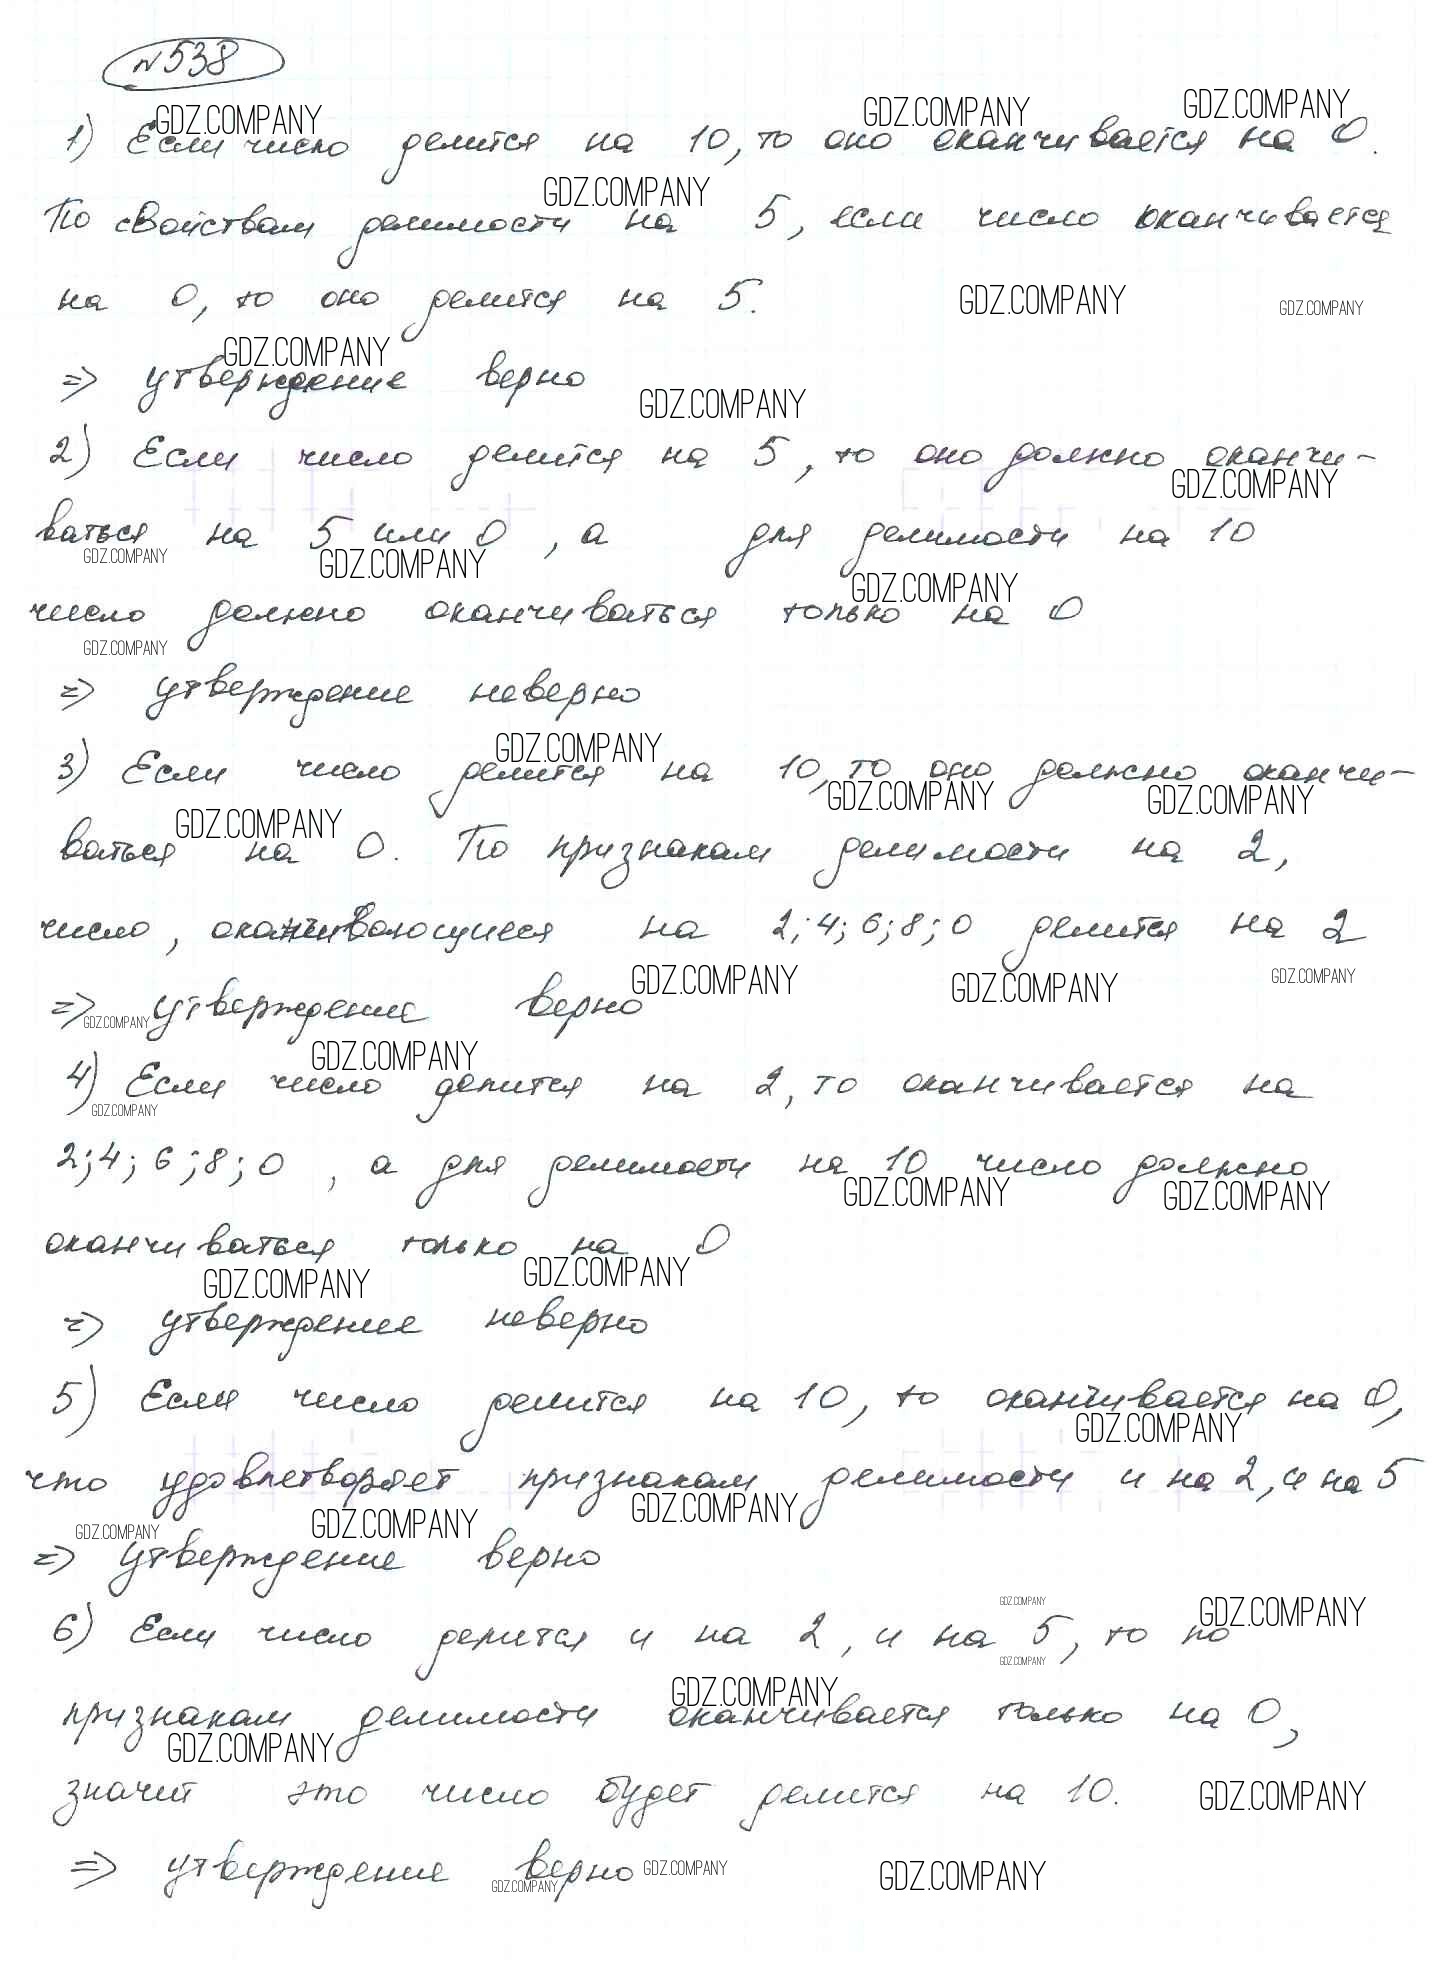 №538
GDZ.COMPANY GDZ.COMPANY GDZ.COMPANY
1) Если число делится на 10, то оно оканчивается на 0.
GDZ.COMPANY
По свойствам делимости на 5, если число оканчивается
на 0, то оно делится на 5. GDZ.COMPANY GDZ.COMPANY
GDZ.COMPANY
=> утверждение верно
GDZ.COMPANY
2) Если число делится на 5, то оно должно оканчи-
GDZ.COMPANY
ваться на 5 или 0, а для делимости на 10
GDZ.COMPANY GDZ.COMPANY GDZ.COMPANY
число должно оканчиваться только на 0
GDZ.COMPANY
=> утверждение неверно
GDZ.COMPANY
3) Если число делится на 10, то оно должно оканчи-
GDZ.COMPANY GDZ.COMPANY GDZ.COMPANY
ваться на 0. По признакам делимости на 2,
число, оканчивающиеся на 2; 4; 6; 8; 0 делится на 2
GDZ.COMPANY GDZ.COMPANY GDZ.COMPANY
=> утверждение верно
GDZ.COMPANY
GDZ.COMPANY
4) Если число делится на 2, то оканчивается на
GDZ.COMPANY
2; 4; 6; 8; 0, а для делимости на 10 число должно
GDZ.COMPANY GDZ.COMPANY
оканчиваться только на 0
GDZ.COMPANY GDZ.COMPANY
=> утверждение неверно
5) Если число делится на 10, то оканчивается на 0,
GDZ.COMPANY
что удовлетворяет признакам делимости и на 2, и на 5
GDZ.COMPANY GDZ.COMPANY GDZ.COMPANY
=> утверждение верно
GDZ.COMPANY GDZ.COMPANY
6) Если число делится и на 2, и на 5, то по
GDZ.COMPANY
GDZ.COMPANY
признакам делимости оканчивается только на 0,
GDZ.COMPANY
значит это число будет делится на 10. GDZ.COMPANY
=> утверждение верно GDZ.COMPANY GDZ.COMPANY
GDZ.COMPANY